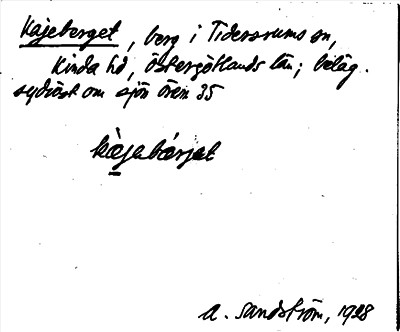 Kajeberget, berg i Tidersrums sn,
Kinda hd, Östergötlands län; beläg.
sydöst om sjön Ören 35
kæjabærjat
A. Sandström, 1928